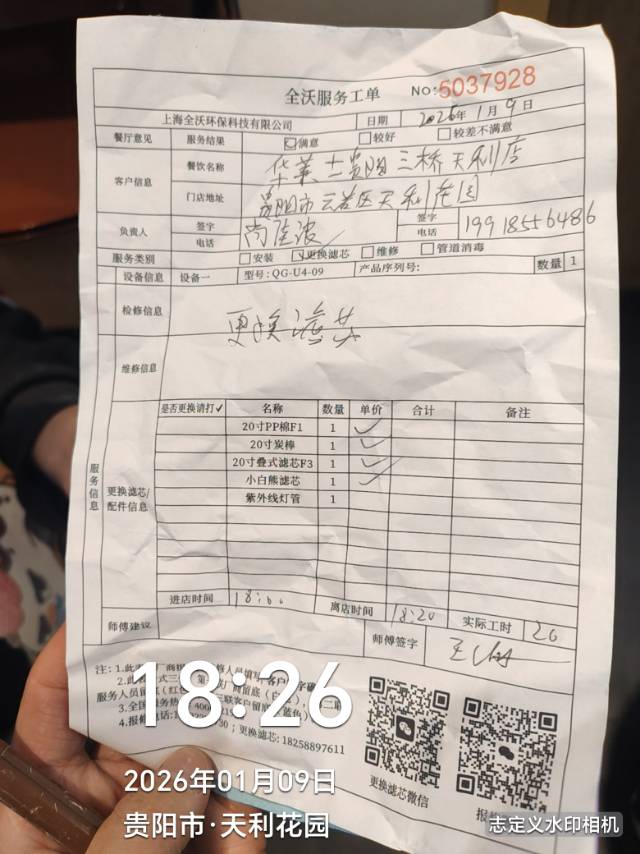 全沃服务工单 NO:5037928
上海全沃环保科技有限公司 日期 2026年1月9日
餐厅意见 服务结果 ☑满意 □较好 □较差不满意
客户信息 餐饮名称 华莱士贵阳三桥天利店
门店地址 贵阳市云岩区天利花园
负责人 签字 电话 尚 波 签字 电话 19918556486
服务类别 □安装 ☑更换滤芯 □维修 □管道消毒
设备信息 设备一 型号: QG-U4-09 产品序列号: 数量 1
检修信息 更换滤芯
维修信息
服务信息
更换滤芯/配件信息
是否更换请打✓ 名称 数量 单价 合计 备注
20寸PP棉F1 1 ✓
20寸炭棒 1 ✓
20寸叠式滤芯F3 1 ✓
小白熊滤芯 1 ✓
紫外线灯管 1
进店时间 18:00 离店时间 18:20 实际工时 20
师傅建议 师傅签字 王
注: 1.此
2.此 式三
服务人员留 联客户留 蓝色)
3.全国服务热 400
4.报修 话: 30 ; 更换滤芯: 18258897611
更换滤芯微信
报
18:26
2026年01月09日
贵阳市·天利花园
志定义水印相机